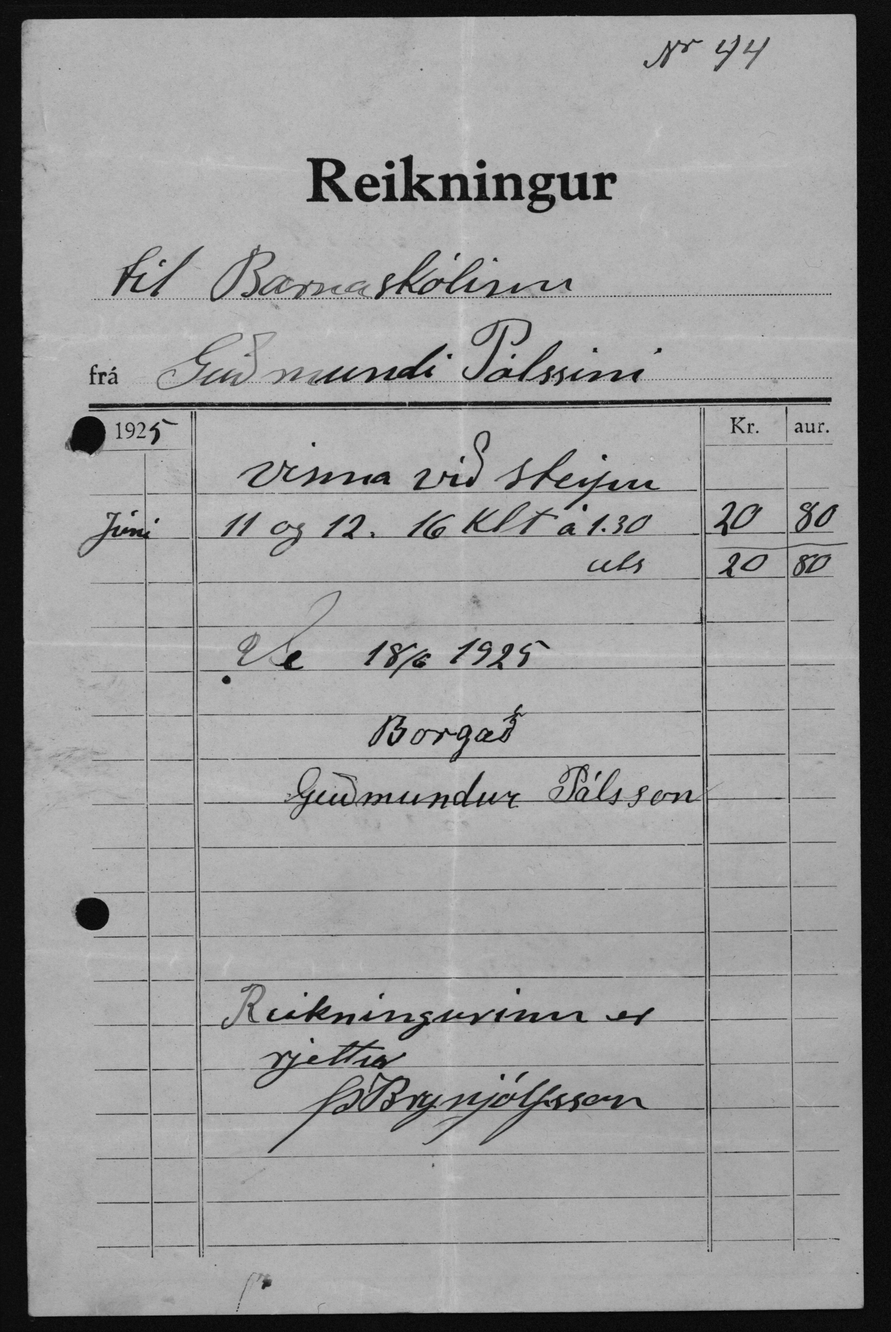 Nr 44
Reikningur
til Barnaskólinn
frá Guðmundi Pálssini
1925 Kr. aur.
vinna við steijpu
Júní 11 og 12. 16 Klt á 1.30 20 80
als 20 80
Ve 18/6 1925
Borgað
Guðmundur Pálsson
Reikningurinn er
rjettur
Brynjólfsson